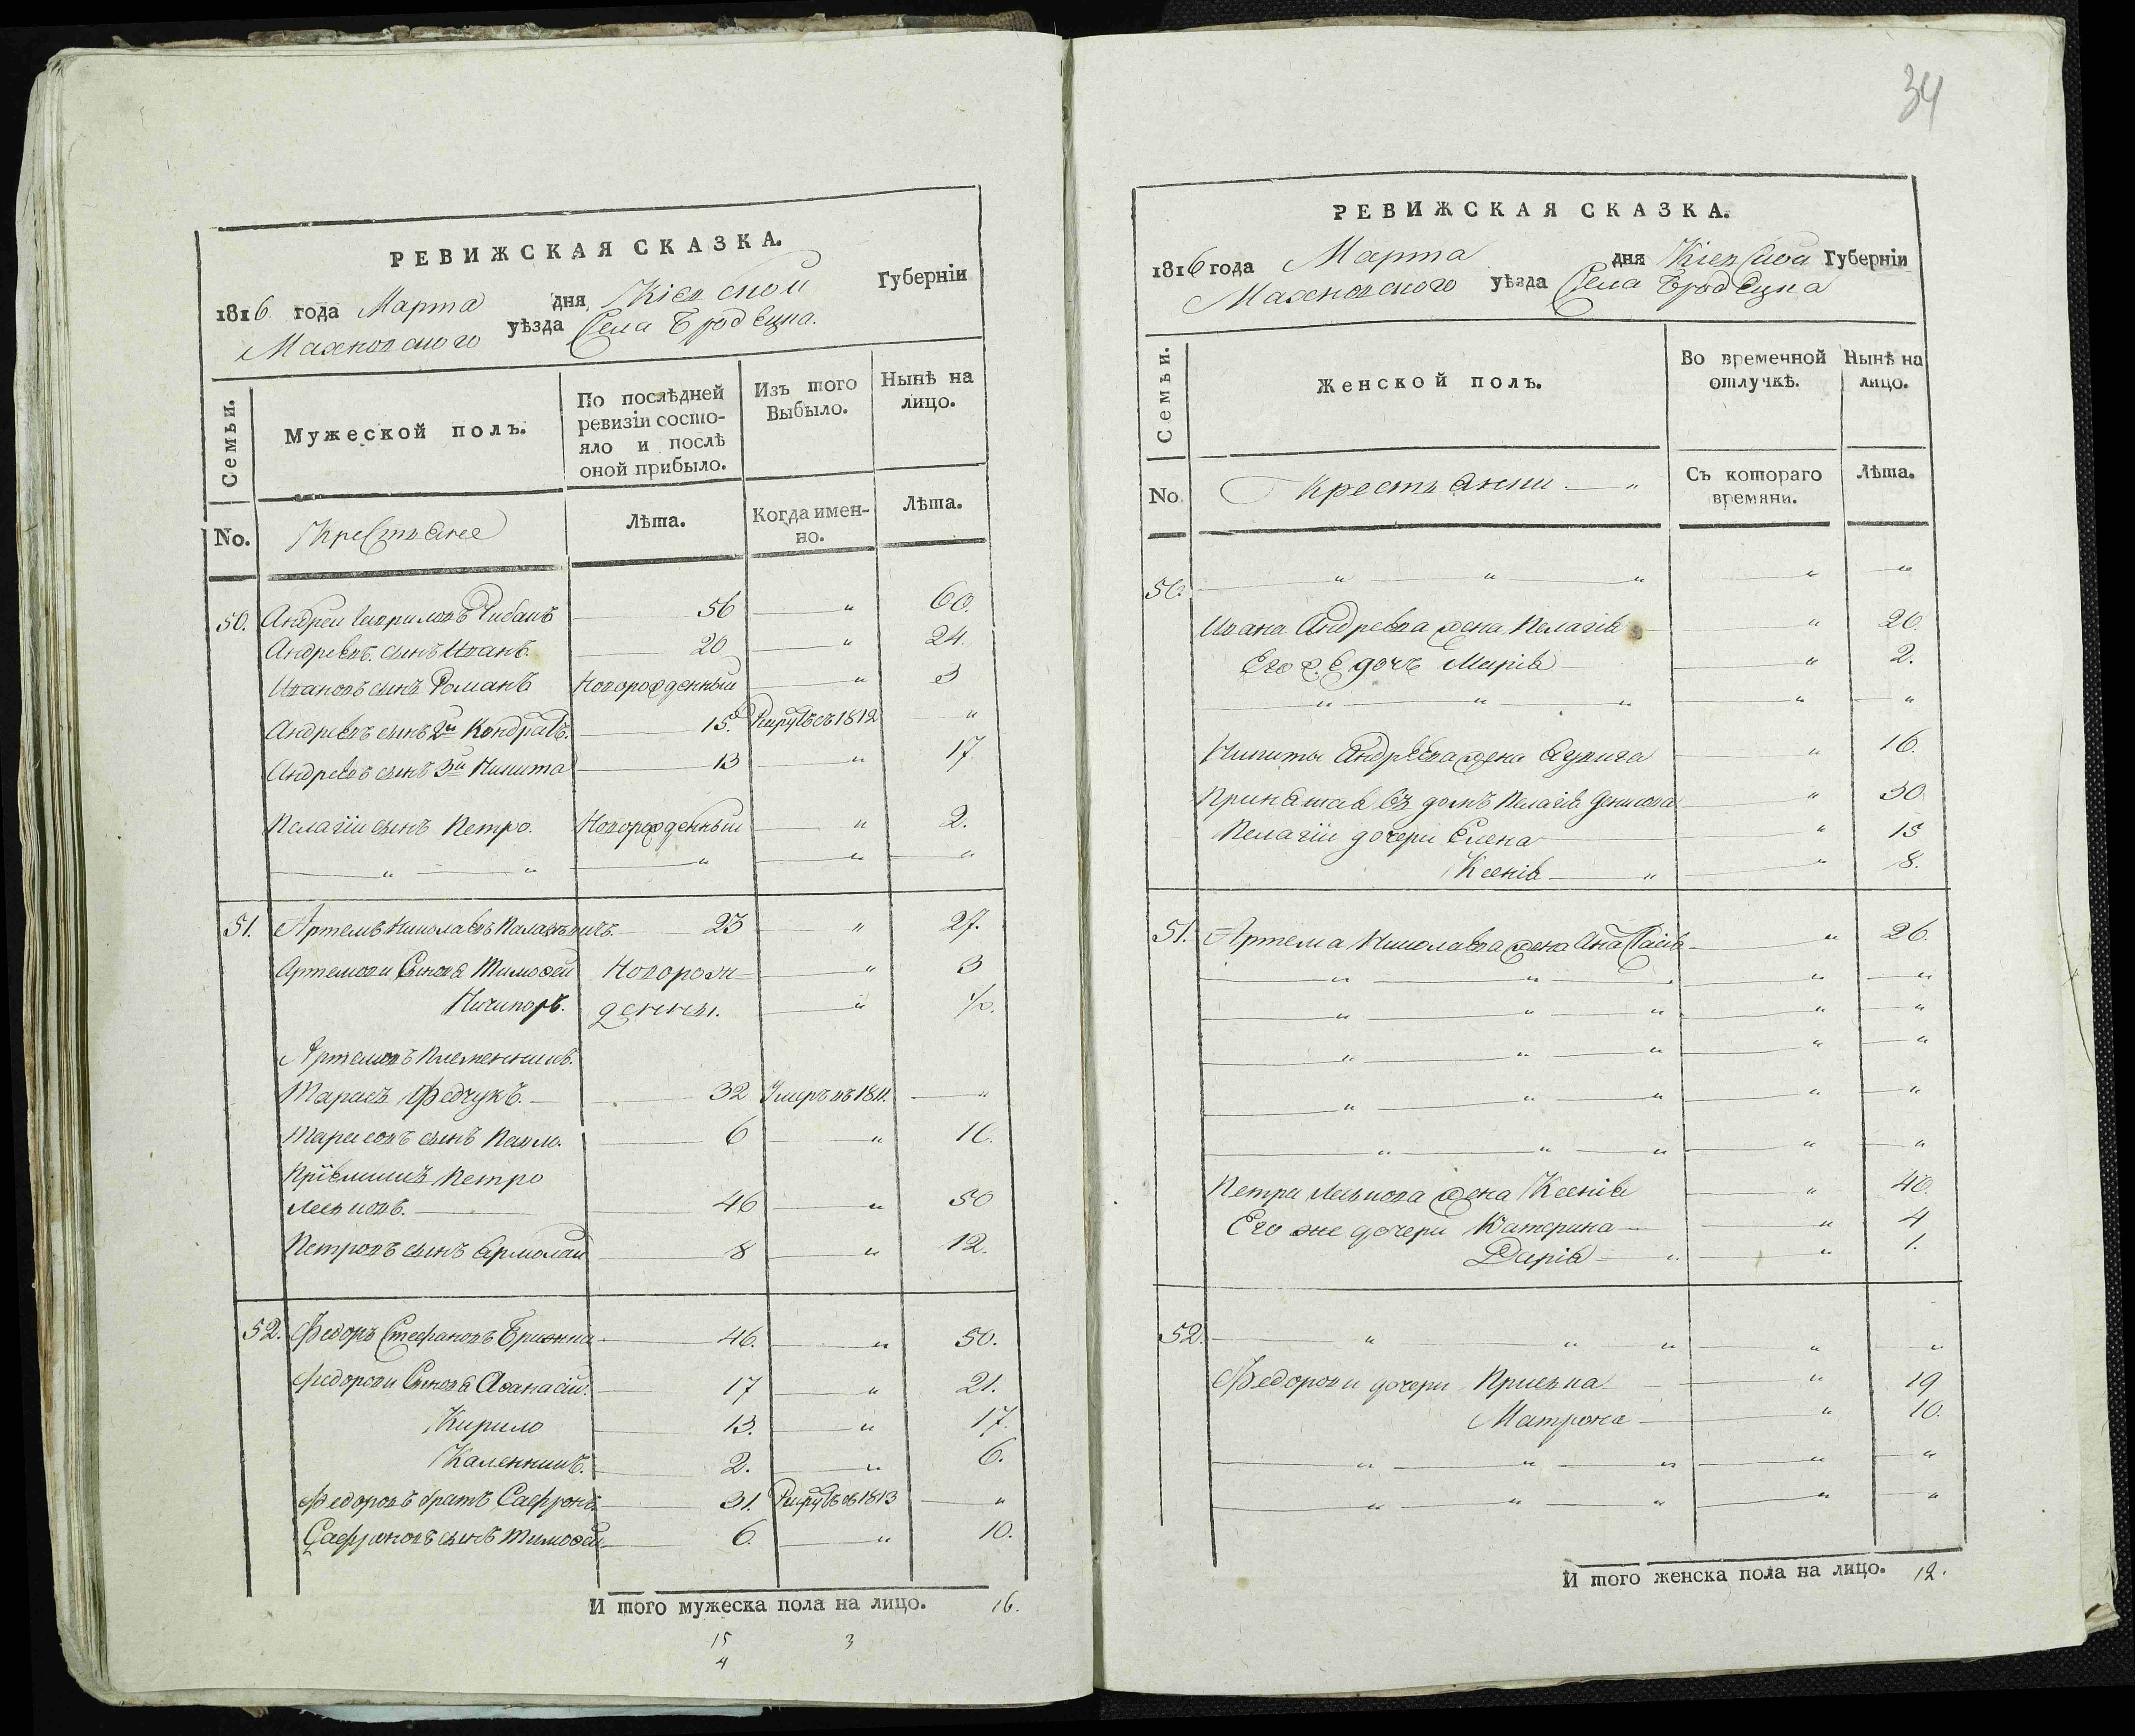 34
РЕВИЖСКАЯ СКАЗКА.
1816 года Марта дня Кіевской Губерніи
Махновского уѣзда Села Бродецка.
Семьи.
Мужеской полъ.
По послѣдней ревизіи состо-
яло и послѣ оной прибыло.
Изъ того Выбыло.
Нынѣ на лицо.
No.
Крестьяне
Лѣта.
Когда имен-
но.
Лѣта.
50. Андрей Гавриловъ Рибакъ 56 " 60.
Андреевъ сынъ Иванъ. 20 " 24.
Ивановъ сынъ Романъ Новорожденный " 3
Андреевъ сынъ 2й Кондратъ. 15. 1812 "
Андреевъ сынъ 3й Никита 13 " 17.
Пелагіи сынъ Петро. Новорожденный " 2.
" " " " "
51. Артемъ Николаевъ 23 " 27.
Артемови Сыновя Тимофей Новорож- " 3
Ничипоръ. денны. " 1/2.
Артемовъ племенникъ.
Тарасъ Федчукъ. 32 Умеръ въ 1811. "
Тарасовъ сынъ Павло. 6 " 10.
Пріемишъ Петро
Леськовъ. 46 " 50
Петровъ сынъ Ермолай 8 " 12.
52. Федоръ Стефановъ 46. " 50.
Федорови Сыновя Афанасій. 17 " 21.
Кирило 13. " 17.
Каленникъ. 2. " 6.
Федоровъ братъ Сафронъ. 31. 1813 "
Сафроновъ сынъ Тимофей. 6. " 10.
И того мужеска пола на лицо. 16.
15 3
4
РЕВИЖСКАЯ СКАЗКА.
1816 года Марта дня Кіевской Губерніи
Махновского уѣзда Села Бродецка
Семьи.
Женской полъ.
Во временной отлучкѣ.
Нынѣ на лицо.
No.
Крестьянки "
Съ котораго времяни.
Лѣта.
50. " " " " "
Ивана Андреева жена Пелагія " 20.
Его жъ дочъ Марія " 2.
" " " " "
Никиты Андреева жена " 16.
Принятая въ домъ Пелагія Денисова " 30.
Пелагіи дочери Елена " 15
Ксенія " " 8.
51. Артема Николаева жена Анастасія " 26.
" " " "
" " " " "
" " " " "
" " " " "
" " " " "
Петра Леськова жена Ксенія " 40.
Его же дочери Катерина " 4
Дарія " " 1.
52. " " " " "
Федорови дочери Приська " 19
Матрона " 10.
" " " " "
" " " " "
И того женска пола на лицо. 12.